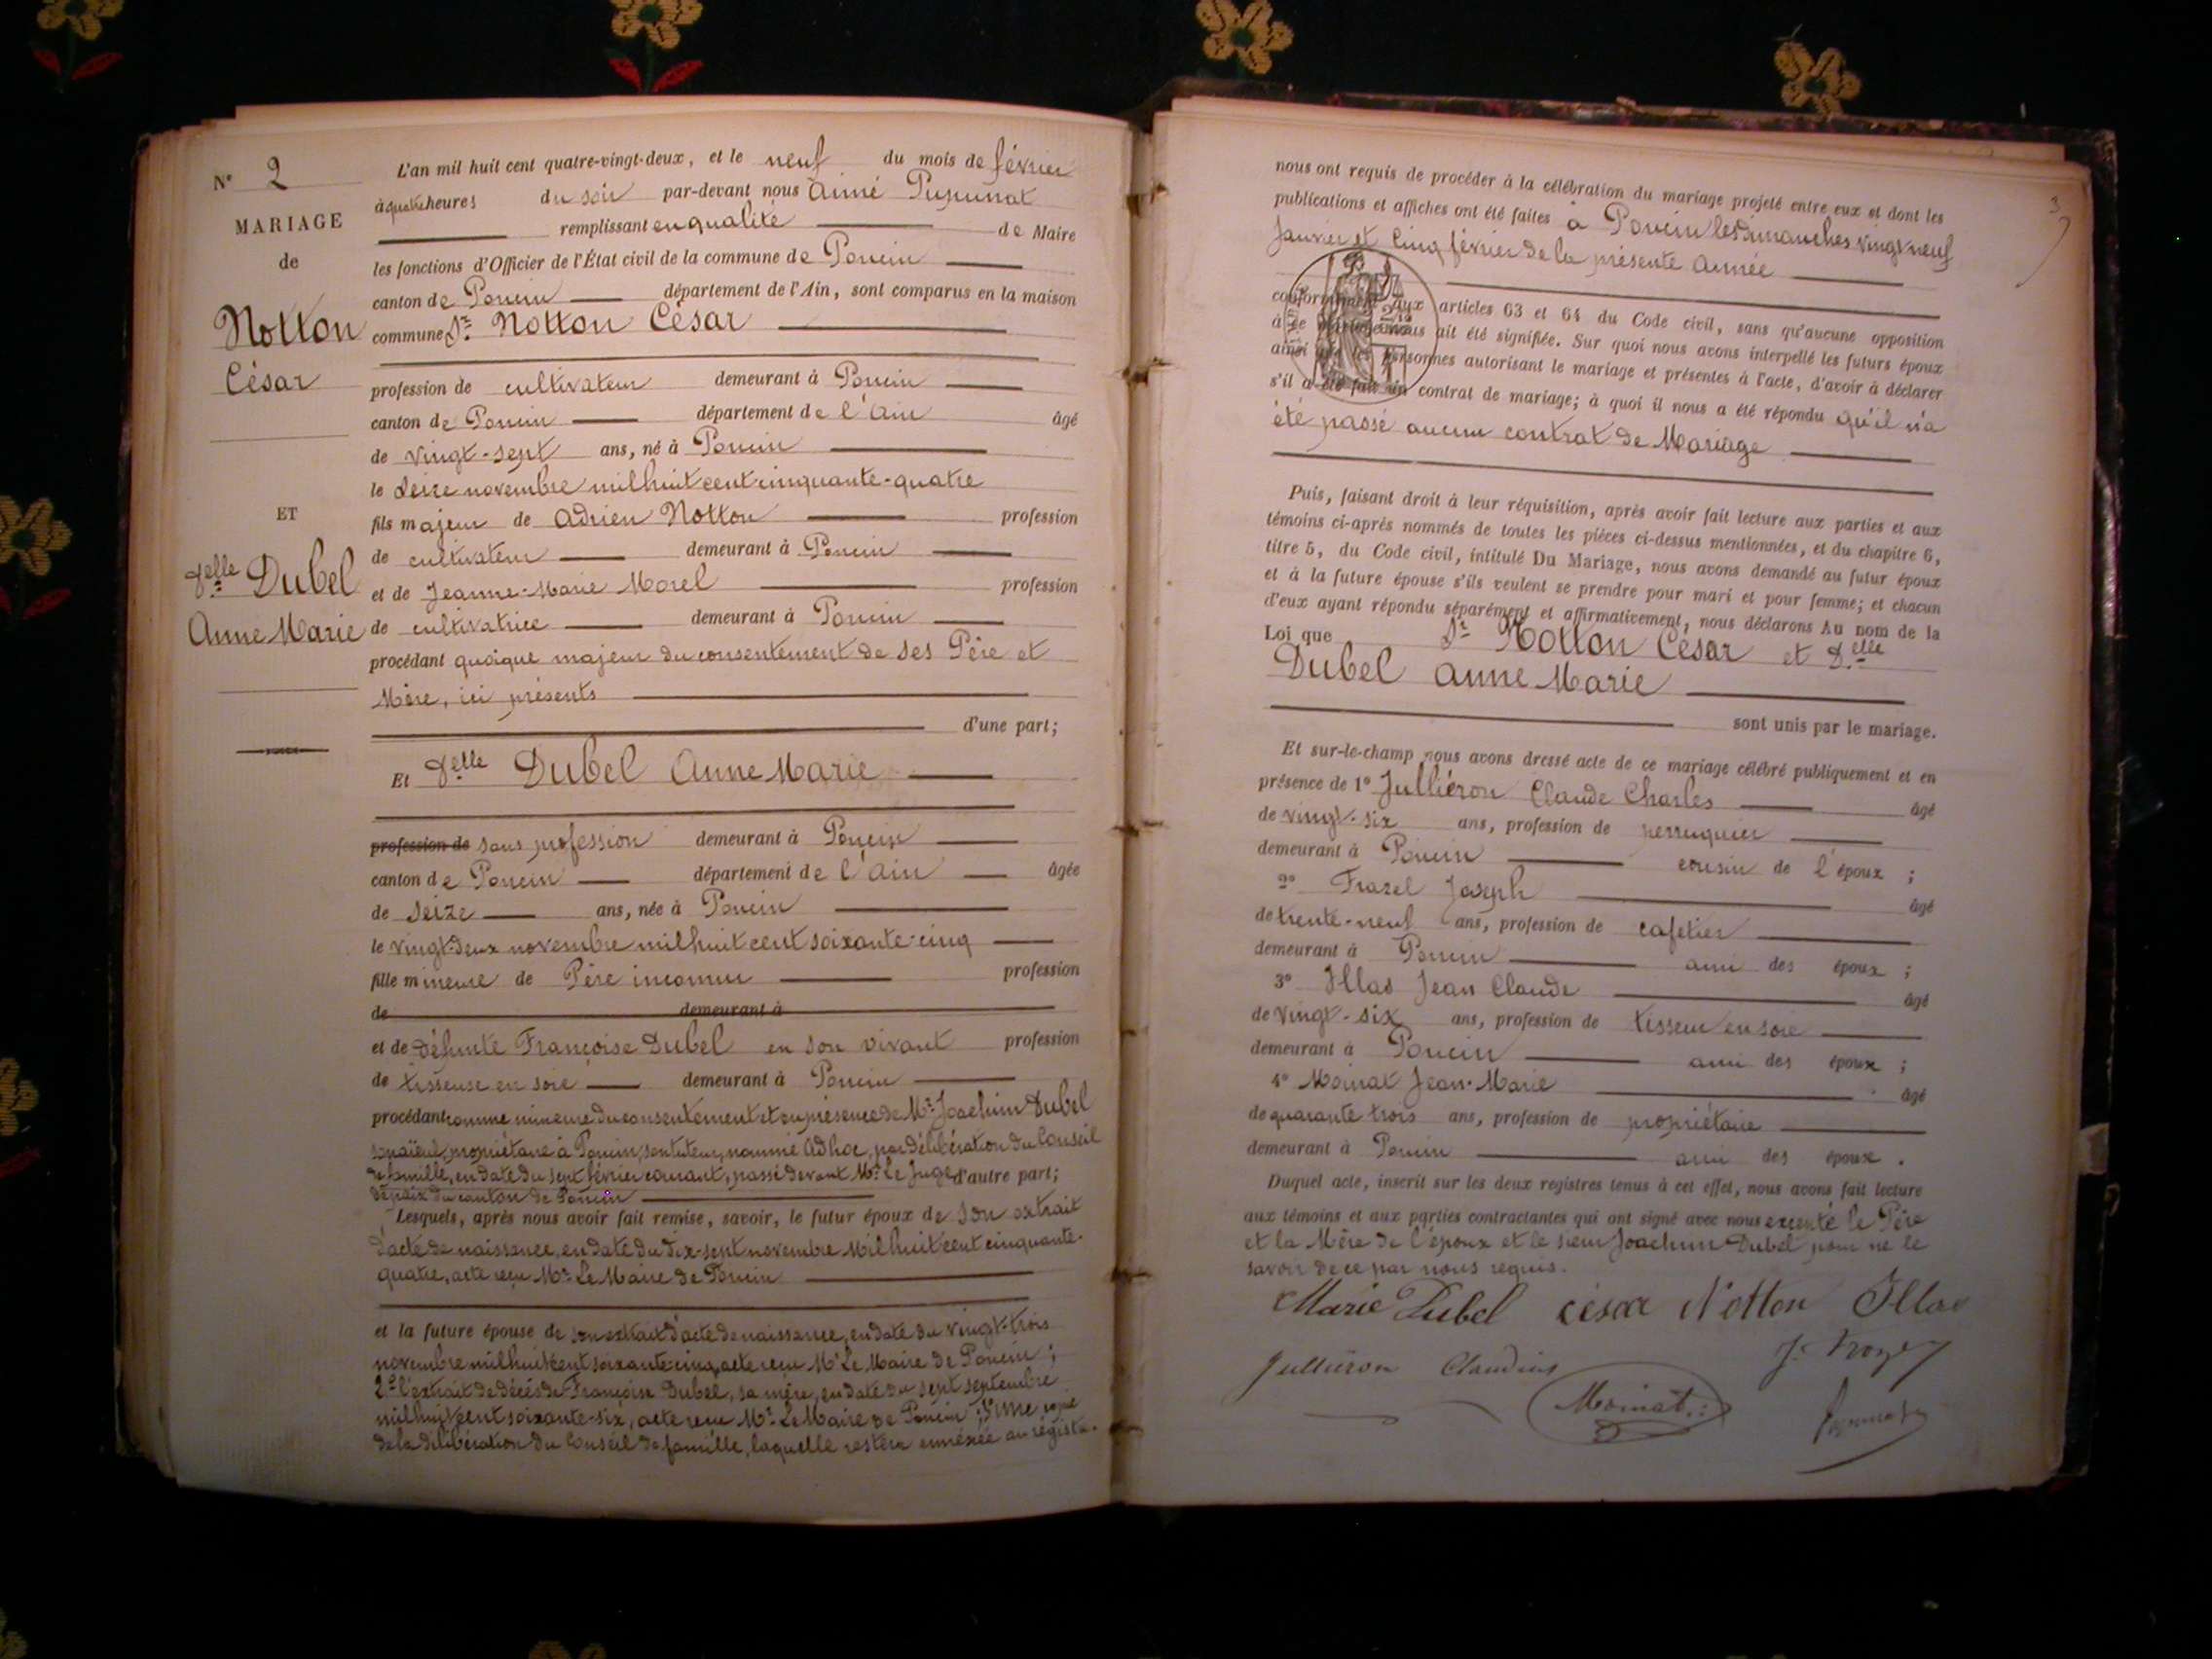 N° 2
MARIAGE
de
Notton
César
ET
Delle Dubel
Anne Marie
L'an mil huit cent quatre-vingt-deux, et le neuf du mois de février
à quatre heures du soir par-devant nous Aimé
remplissant en qualité de Maire
les fonctions d'Officier de l'État civil de la commune de Poncin
canton de Poncin département de l'Ain, sont comparus en la maison
commune Sr Notton César
profession de cultivateur demeurant à Poncin
canton de Poncin département de l'Ain âgé
de vingt-sept ans, né à Poncin
le seize novembre mil huit cent cinquante-quatre
fils majeur de Adrien Notton profession
de cultivateur demeurant à Poncin
et de Jeanne-Marie Morel profession
de cultivatrice demeurant à Poncin
procédant quoique majeur du consentement de ses Père et
Mère, ici présents
d'une part;
Et Delle Dubel Anne Marie
profession de sans profession demeurant à Poncin
canton de Poncin département de l'Ain âgée
de seize ans, née à Poncin
le vingt-deux novembre mil huit cent soixante-cinq
fille mineure de Père inconnu profession
de demeurant à
et de défunte Françoise Dubel en son vivant profession
de tisseuse en soie demeurant à Poncin
procédant comme mineure du consentement et en présence de Mr Joachim Dubel
son aïeul, propriétaire à Poncin, son tuteur, nommé Ad hoc, par délibération du Conseil
de famille, en date du sept février courant, passé devant Mr Le Juge d'autre part;
de paix du canton de Poncin
Lesquels, après nous avoir fait remise, savoir, le futur époux de son extrait
d'acte de naissance, en date du dix-sept novembre mil huit cent cinquante-
quatre, acte reçu Mr Le Maire de Poncin
et la future épouse de son extrait d'acte de naissance, en date du vingt-trois
novembre mil huit cent soixante-cinq, acte reçu Mr Le Maire de Poncin;
2° l'extrait de décès de Françoise Dubel, sa mère, en date du sept septembre
mil huit cent soixante-six, acte reçu Mr Le Maire de Poncin; 3° une copie
de la délibération du Conseil de famille, laquelle restera annexée au registre.
3
nous ont requis de procéder à la célébration du mariage projeté entre eux et dont les
publications et affiches ont été faites à Poncin les dimanches vingt neuf
Janvier et cinq février de la présente année
conformément aux articles 63 et 64 du Code civil, sans qu'aucune opposition
à ce mariage nous ait été signifiée. Sur quoi nous avons interpellé les futurs époux
ainsi que les personnes autorisant le mariage et présentes à l'acte, d'avoir à déclarer
s'il a été fait un contrat de mariage; à quoi il nous a été répondu qu'il n'a
été passé aucun contrat de Mariage
Puis, faisant droit à leur réquisition, après avoir fait lecture aux parties et aux
témoins ci-après nommés de toutes les pièces ci-dessus mentionnées, et du chapitre 6,
titre 5, du Code civil, intitulé Du Mariage, nous avons demandé au futur époux
et à la future épouse s'ils veulent se prendre pour mari et pour femme; et chacun
d'eux ayant répondu séparément et affirmativement, nous déclarons Au nom de la
Loi que Sr Notton César et Delle
Dubel Anne Marie
sont unis par le mariage.
Et sur-le-champ nous avons dressé acte de ce mariage célébré publiquement et en
présence de 1° Julliéron Claude Charles âgé
de vingt-six ans, profession de perruquier
demeurant à Poncin cousin de l'époux ;
2° Joseph âgé
de trente-neuf ans, profession de cafetier
demeurant à Poncin ami des époux ;
3° Illas Jean Claude âgé
de vingt-six ans, profession de tisseur en soie
demeurant à Poncin ami des époux ;
4° Moinat Jean-Marie âgé
de quarante trois ans, profession de propriétaire
demeurant à Poncin ami des époux .
Duquel acte, inscrit sur les deux registres tenus à cet effet, nous avons fait lecture
aux témoins et aux parties contractantes qui ont signé avec nous excepté le Père
et la Mère de l'époux et le sieur Joachim Dubel pour ne le
savoir de ce par nous requis.
Marie Dubel César Notton Illas
Julliéron Claudius
Moinat